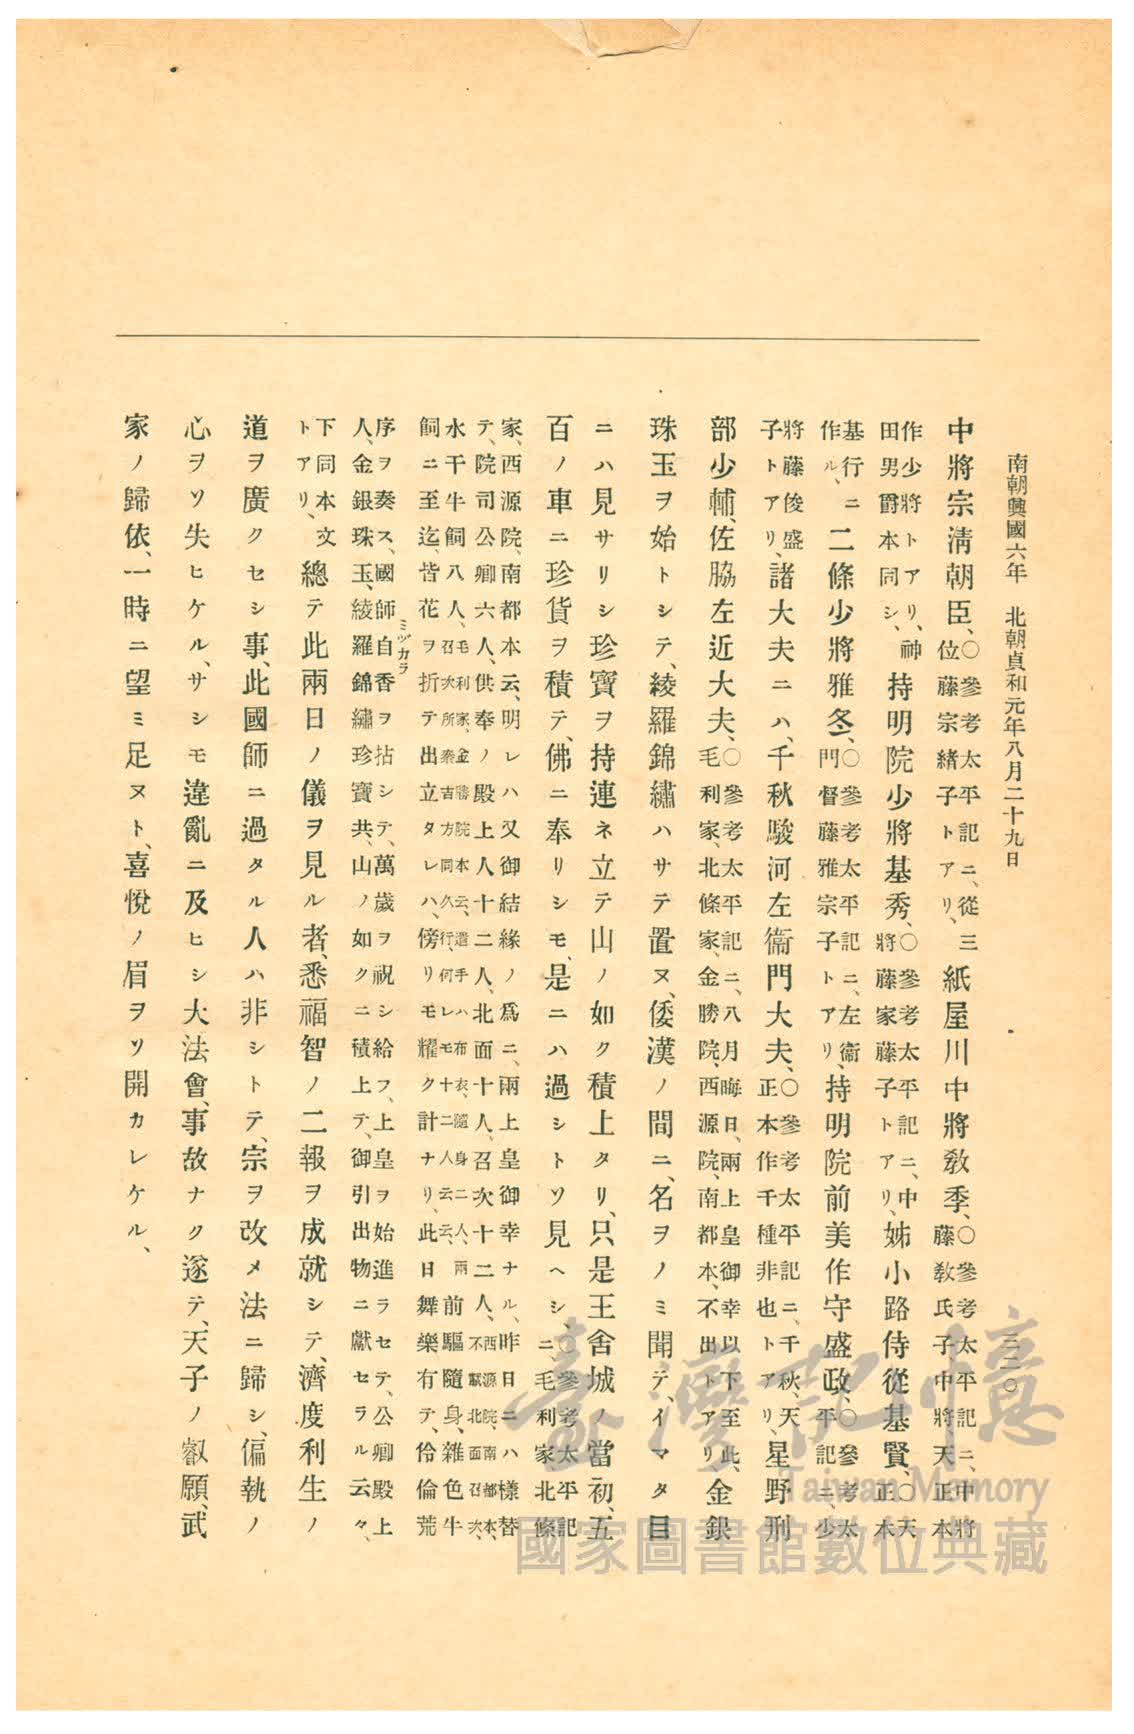 南朝興國六年　北朝貞和元年八月二十九日
三二〇
中將宗淸朝臣、〇參考太平記ニ、從三位藤宗緒子トアリ、紙屋川中將敎季、〇參考太平記ニ、中將藤敎氏子中將天正本
作少將トアリ、神田男爵本同シ、持明院少將基秀、〇參考太平記ニ、中將藤家藤子トアリ、姊小路侍從基賢、〇天正本
基行ニ作ル、二條少將雅冬、〇參考太平記ニ、左衞門督藤雅宗子トアリ、持明院前美作守盛政、〇參考太平記ニ、少
將藤俊盛子トアリ、諸大夫ニハ、千秋駿河左衞門大夫、〇參考太平記ニ、千秋、天正本作千種非也トアリ、星野刑
部少輔、佐脇左近大夫、〇參考太平記ニ、八月晦日、兩上皇御幸以下至此、毛利家、北條家、金勝院、西源院、南都本、不出トアリ金銀
珠玉ヲ始トシテ、綾羅錦繡ハサテ置ヌ、倭漢ノ間ニ、名ヲノミ聞テ、イマタ目
ニハ見サリシ珍寶ヲ持連ネ立テ山ノ如ク積上タリ、只是王舍城ノ當初、五
百ノ車ニ珍貨ヲ積テ、佛ニ奉リシモ、是ニハ過シトソ見ヘシ、〇參考太平記ニ、毛利家北條
家、西源院、南都本云、明レハ又御結緣ノ爲ニ、兩上皇御幸ナル、昨日ニハ樣替
テ、院司公卿六人、供奉ノ殿上人十二人、北面十人、召次十二人、西源院、南都本、不載北面召次、
水干牛飼八人、毛利家、金勝院本云、遣手ハ布衣、隨身二人、兩召次所秦吉方同久行、何レモ十二人云云、前驅隨身、雜色牛
飼ニ至迄、皆花ヲ折テ出立タレハ、傍リモ耀ク計ナリ、此日舞樂有テ、伶倫荒
序ヲ奏ス、國師自香ヲ拈シテ、萬歲ヲ祝シ給フ、上皇ヲ始進ラセテ、公卿殿上
ミヅカラ
人、金銀珠玉、綾羅錦繡珍寶共、山ノ如クニ積上テ、御引出物ニ獻セラル云々、
下同本文トアリ、總テ此兩日ノ儀ヲ見ル者、悉福智ノ二報ヲ成就シテ、濟度利生ノ
道ヲ廣クセシ事、此國師ニ過タル人ハ非シトテ、宗ヲ改メ法ニ歸シ、偏執ノ
心ヲソ失ヒケル、サシモ違亂ニ及ヒシ大法會、事故ナク遂テ、天子ノ叡願、武
家ノ歸依、一時ニ望ミ足ヌト、喜悅ノ眉ヲソ開カレケル、
臺灣記憶
Taiwan Memory
國家圖書館數位典藏